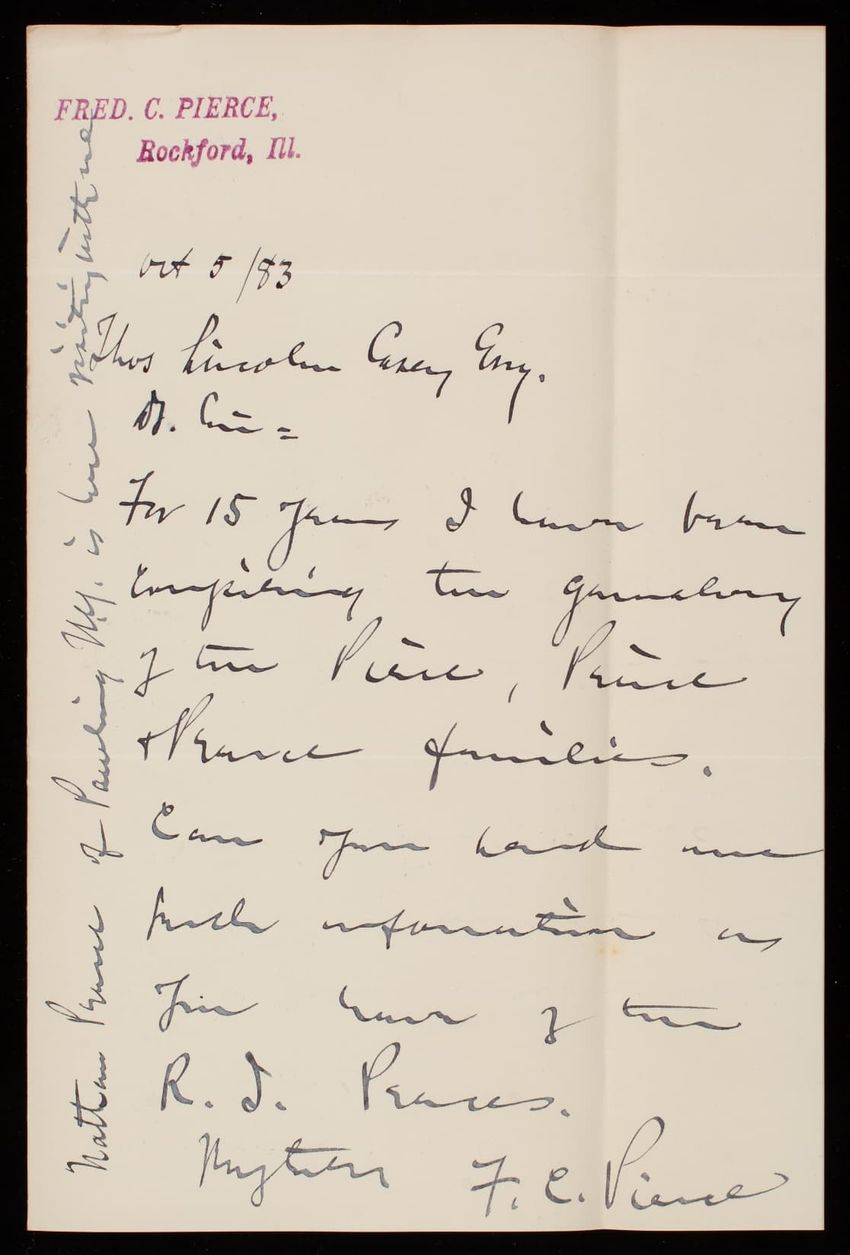 FRED. C. PIERCE,
Rockford, Ill.
Oct 5/83
Thos Lincoln Casey Esq.
D. Sir =
For 15 years I have been
compiling the genealogy
of the Pierce, Peirce
+ Pearce families.
Can you send me
such information as
you have of the
R. I. Pearces.
F. C. Pierce
Nathan Pearce of Pawling N.Y. is here visiting with me